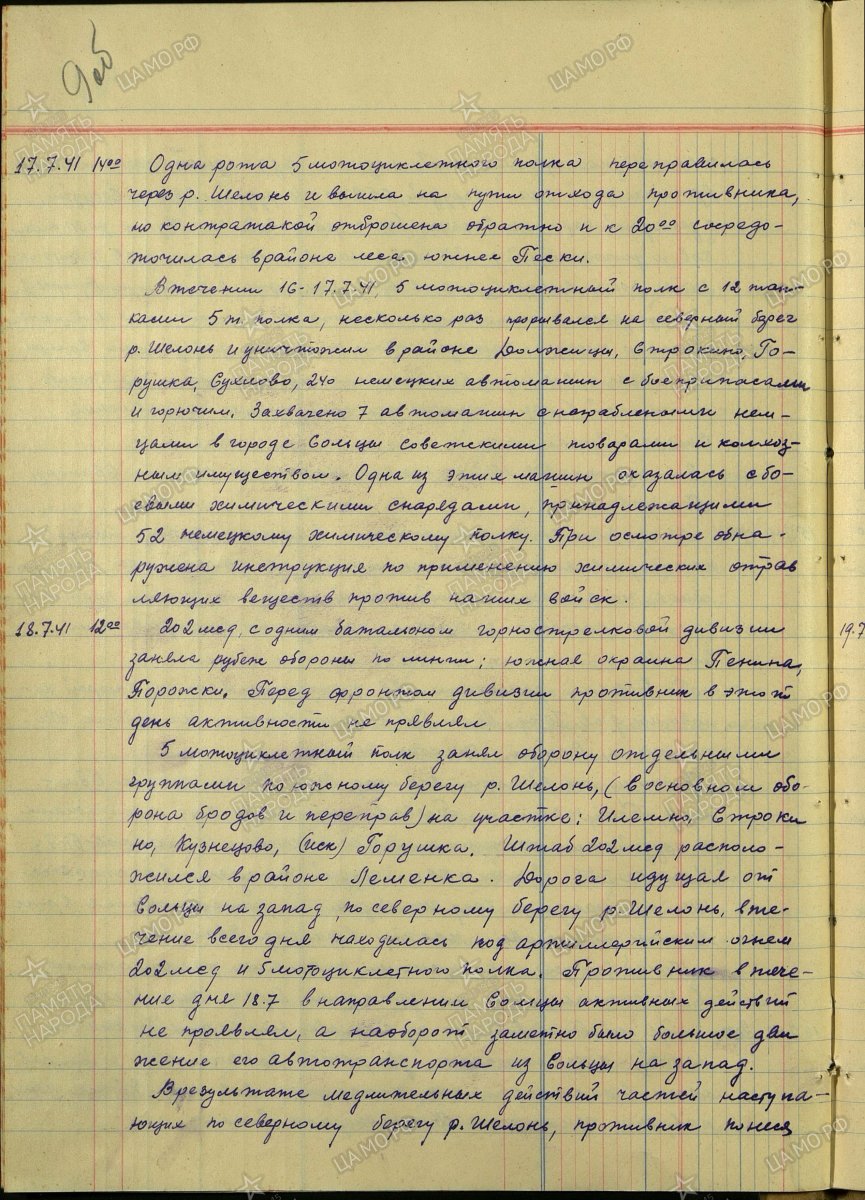 9об
17.7.41 14⁰⁰ Одна рота 5 мотоциклетного полка переправилась
через р. Шелонь и вышла на пути отхода противника,
но контратакой отброшена обратно и к 20⁰⁰ сосредо-
точилась в районе леса южнее Пески.
В течении 16-17.7.41, 5 мотоциклетный полк с 12 тан-
ками 5 т. полка, несколько раз прорывался на северный берег
р. Шелонь и уничтожил в районе Должицы, Строкино, Го-
рушка, Сухлово, 240 немецких автомашин с боеприпасами
и горючим. Захвачено 7 автомашин с награблеными нем-
цами в городе Сольцы советскими товарами и колхоз-
ным имуществом. Одна из этих машин оказалась с бо-
евыми химическими снарядами, принадлежащими
52 немецкому химическому полку. При осмотре обна-
ружена инструкция по применению химических отрав
ляющих веществ против наших войск.
18.7.41 12⁰⁰ 202 мсд, с одним баталионом горнострелковой дивизии
заняла рубеж обороны по линии; южная окраина Пенина,
Порожки. Перед фронтом дивизии противник в этот
день активности не прявлял
5 мотоциклетный полк занял оборону отдельными
группами по южному берегу р. Шелонь, (в основном обо-
рона бродов и переправ) на участке: Илемно, Строки
но, Кузнецово, (иск) Горушка. Штаб 202 мсд располо-
жился в районе Леменка. Дорога идущая от
Сольцы на запад, по северному берегу р. Шелонь, в те-
чение всего дня находилась под артиллерийским огнем
202 мсд и 5 мотоциклетного полка. Противник в тече-
ние дня 18.7 в направлении Сольцы активных действий
не проявлял, а наоборот заметно было большое дви
жение его автотранспорта из Сольцы на запад.
В результате медлительных действий частей наступа-
ющих по северному берегу р. Шелонь, противник понеся
19.7